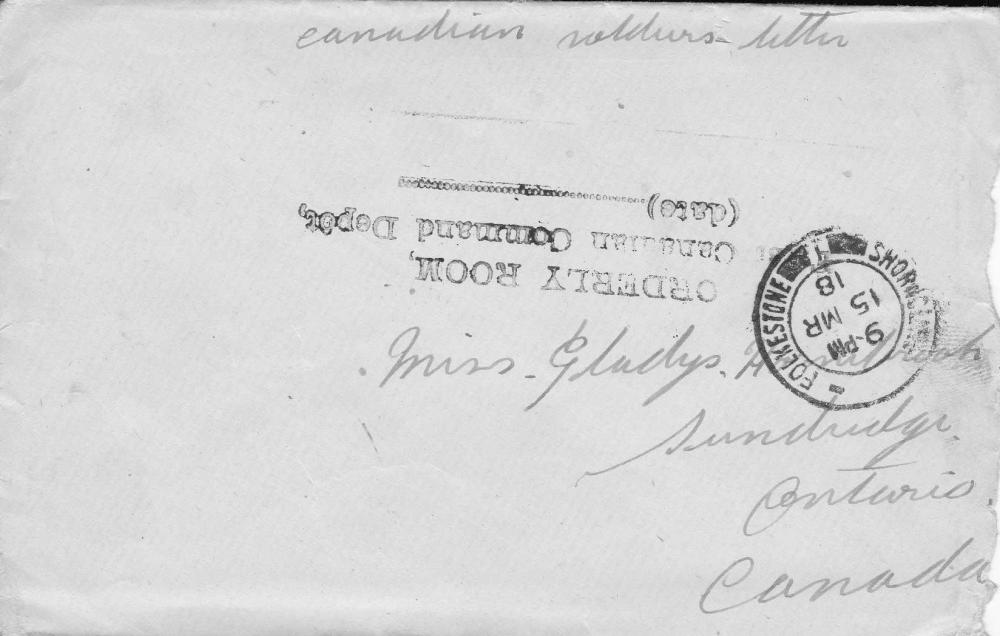 canadian soldiers letter
ORDERLY ROOM,
Canadian Command Depôt,
(date)
SHORNCLIFFE
FOLKESTONE
H
9 PM
15 MR
18
Miss. Gladys.
Sundridge.
Ontario.
Canada